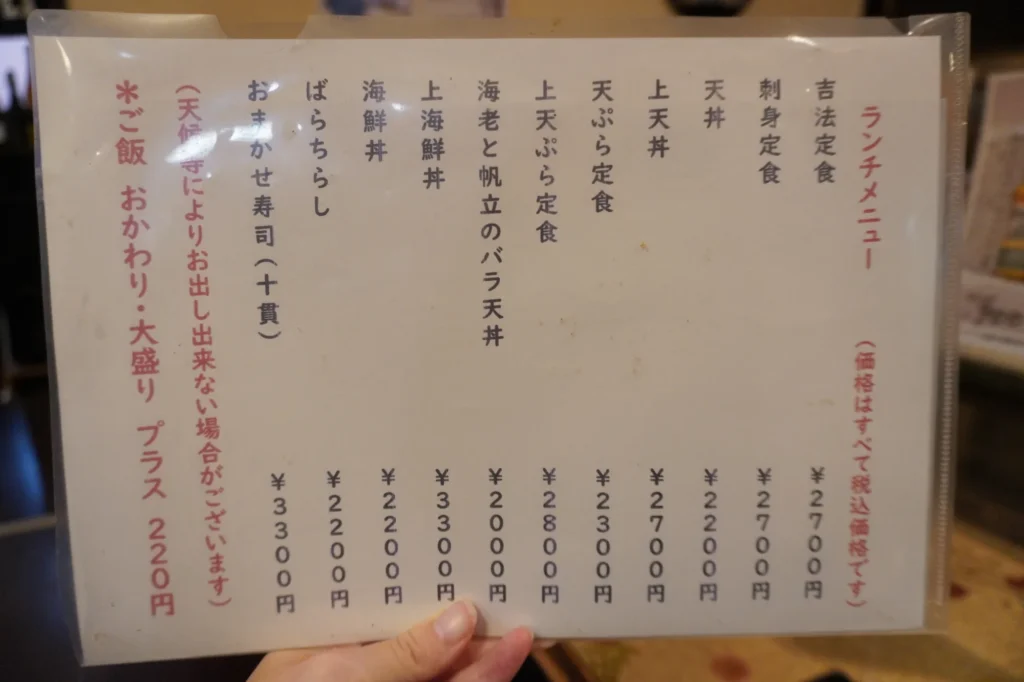 ランチメニュー （価格はすべて税込価格です）
吉法定食 ￥２７００円
刺身定食 ￥２７００円
天丼 ￥２２００円
上天丼 ￥２７００円
天ぷら定食 ￥２３００円
上天ぷら定食 ￥２８００円
海老と帆立のバラ天丼 ￥２０００円
上海鮮丼 ￥３３００円
海鮮丼 ￥２２００円
ばらちらし ￥２２００円
おまかせ寿司（十貫） ￥３３００円
（天候等によりお出し出来ない場合がございます）
＊ご飯 おかわり・大盛り プラス ２２０円